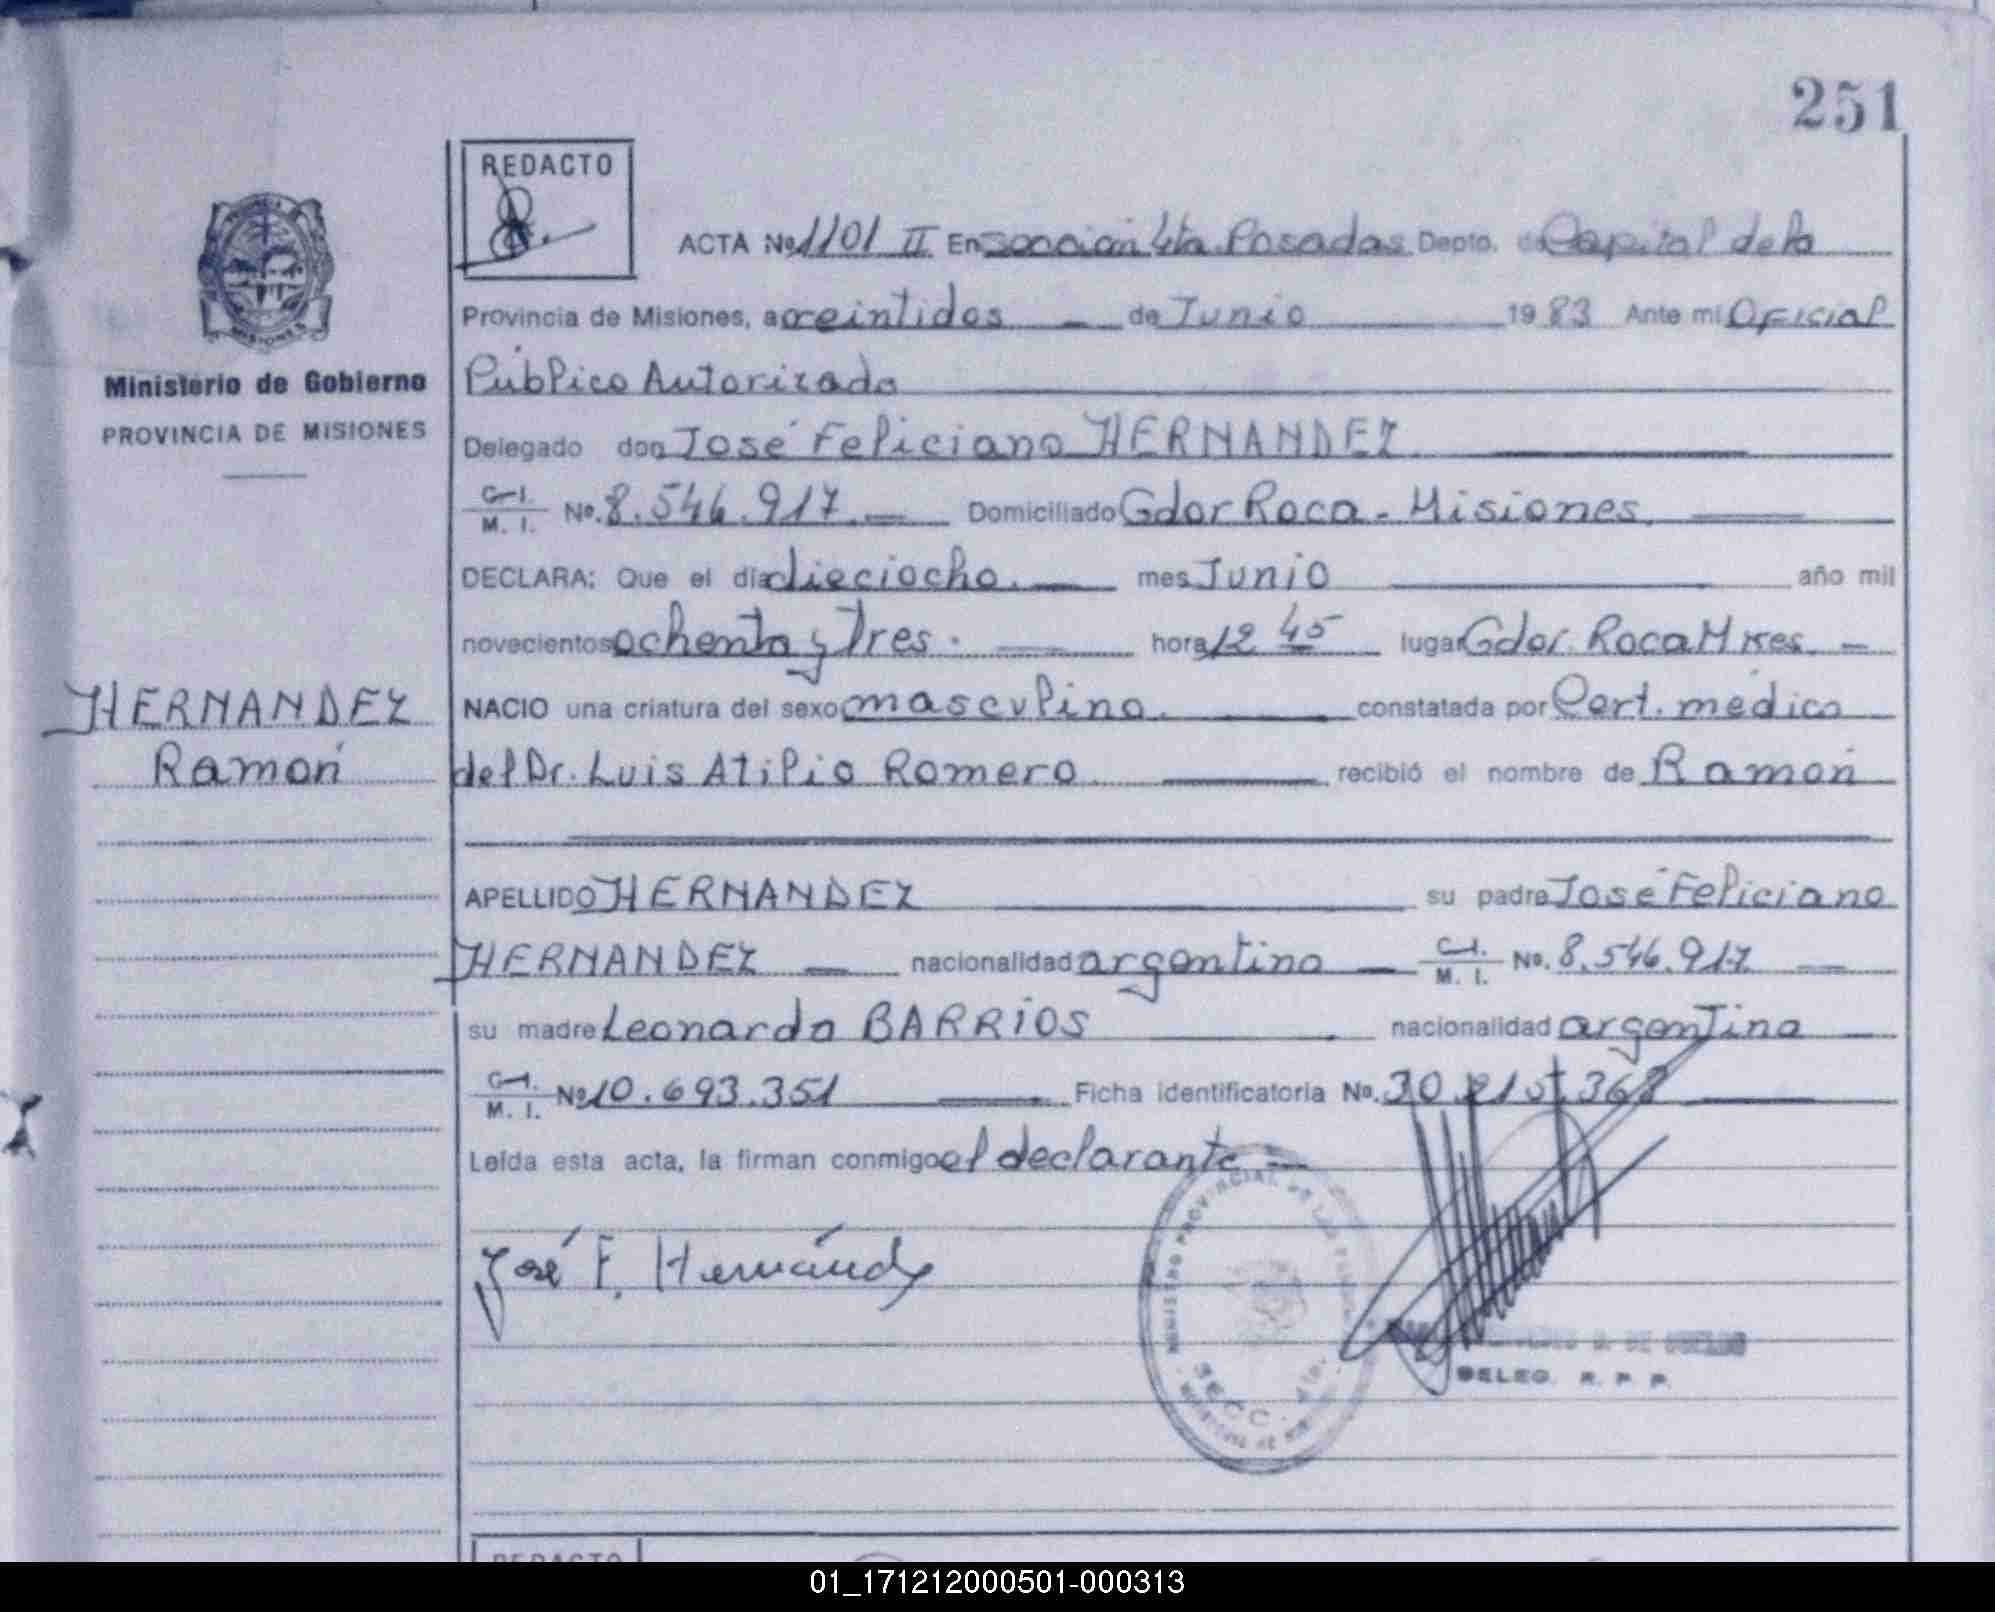 251
REDACTO
ACTA Nº 1101 II En sección 4ta Posadas Depto. de Capital de la
Provincia de Misiones, a veintidos de Junio 1983 Ante mi Oficial
Público Autorizado
Ministerio de Gobierno
PROVINCIA DE MISIONES
Delegado don José Feliciano HERNANDEZ
C.I. M. I. No. 8.546.917 Domiciliado Gdor Roca - Misiones
DECLARA: Que el día dieciocho. mes Junio año mil
novecientos ochenta y tres. hora 12 45 lugar Gdor. Roca Mnes.
HERNANDEZ
Ramón
NACIO una criatura del sexo masculino. constatada por Cert. médico
del Dr. Luis Atilio Romero recibió el nombre de Ramón
APELLIDO HERNANDEZ su padre José Feliciano
HERNANDEZ nacionalidad argentino C.I. M. I. No. 8.546.917
su madre Leonarda BARRIOS nacionalidad argentina
C.I. M. I. Nº 10.693.351 Ficha identificatoria No. 30.215.368
Leída esta acta, la firman conmigo el declarante
José F. Hernández
REGISTRO PROVINCIAL DE LAS PERSONAS
SECC. 4ta.
DELEG. R. P. P.
REDACTO
01_171212000501-000313